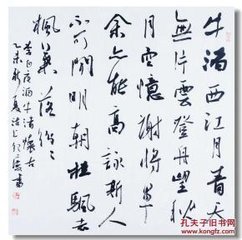 牛渚西江月青天
無片雲登舟望秋
月空憶謝將軍
余亦能高詠斯人
不可聞明朝挂颿去
楓葉落紛紛
李白夜泊牛渚懷古
乙未新夏
孔夫子旧书网